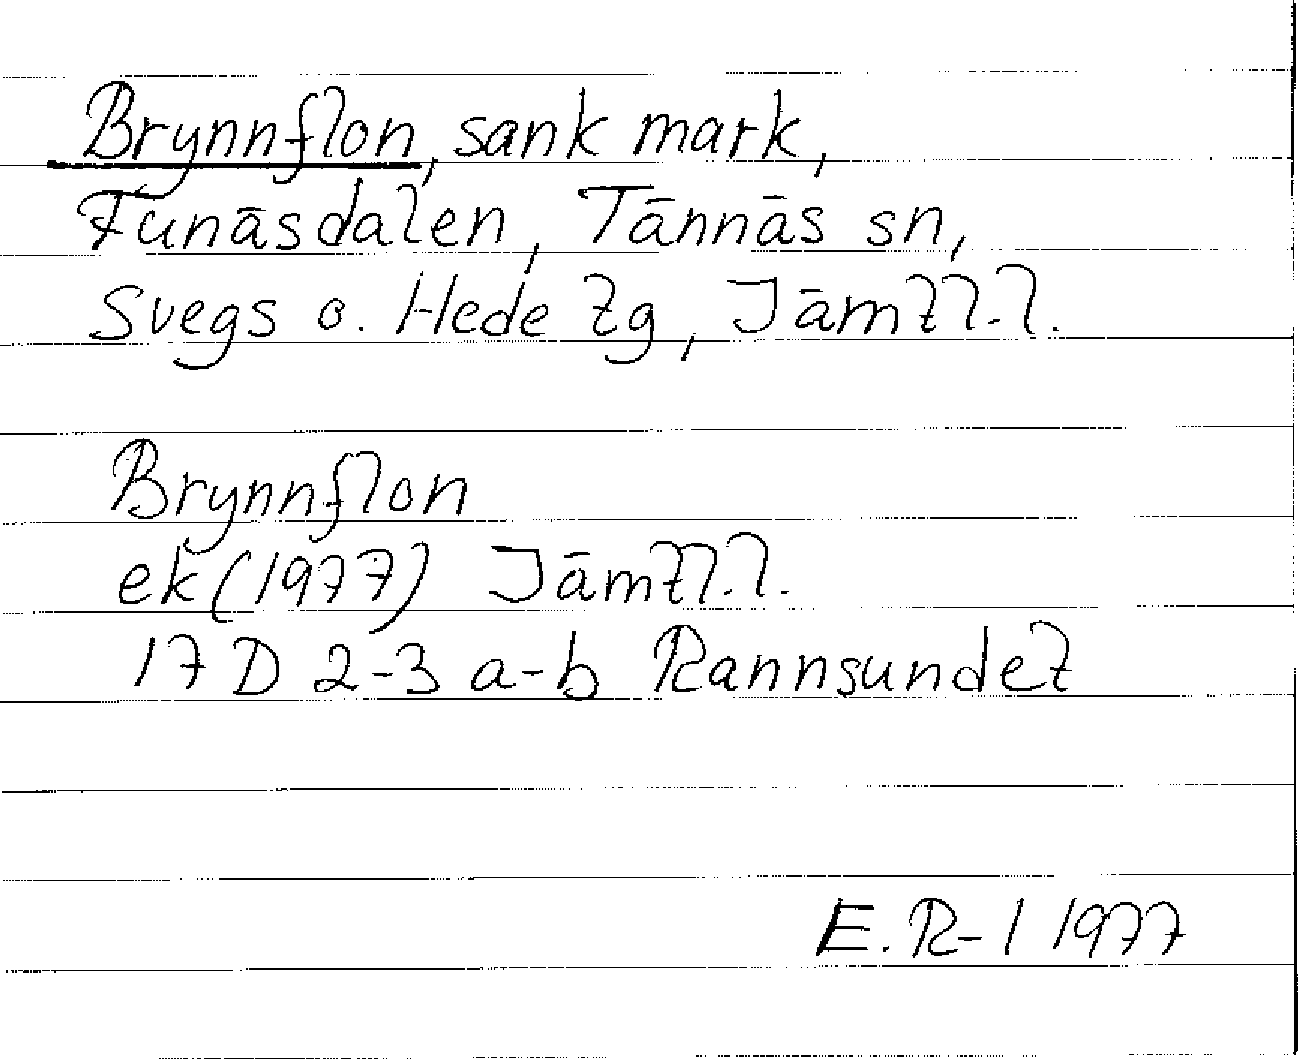 Brynnflon, sank mark,
Funäsdalen, Tännäs sn,
Svegs o. Hede tg, Jämtl.l.
Brynnflon
ek(1977) Jämtl.l.
17 D 2-3 a-b Rannsundet
E.R-l 1977